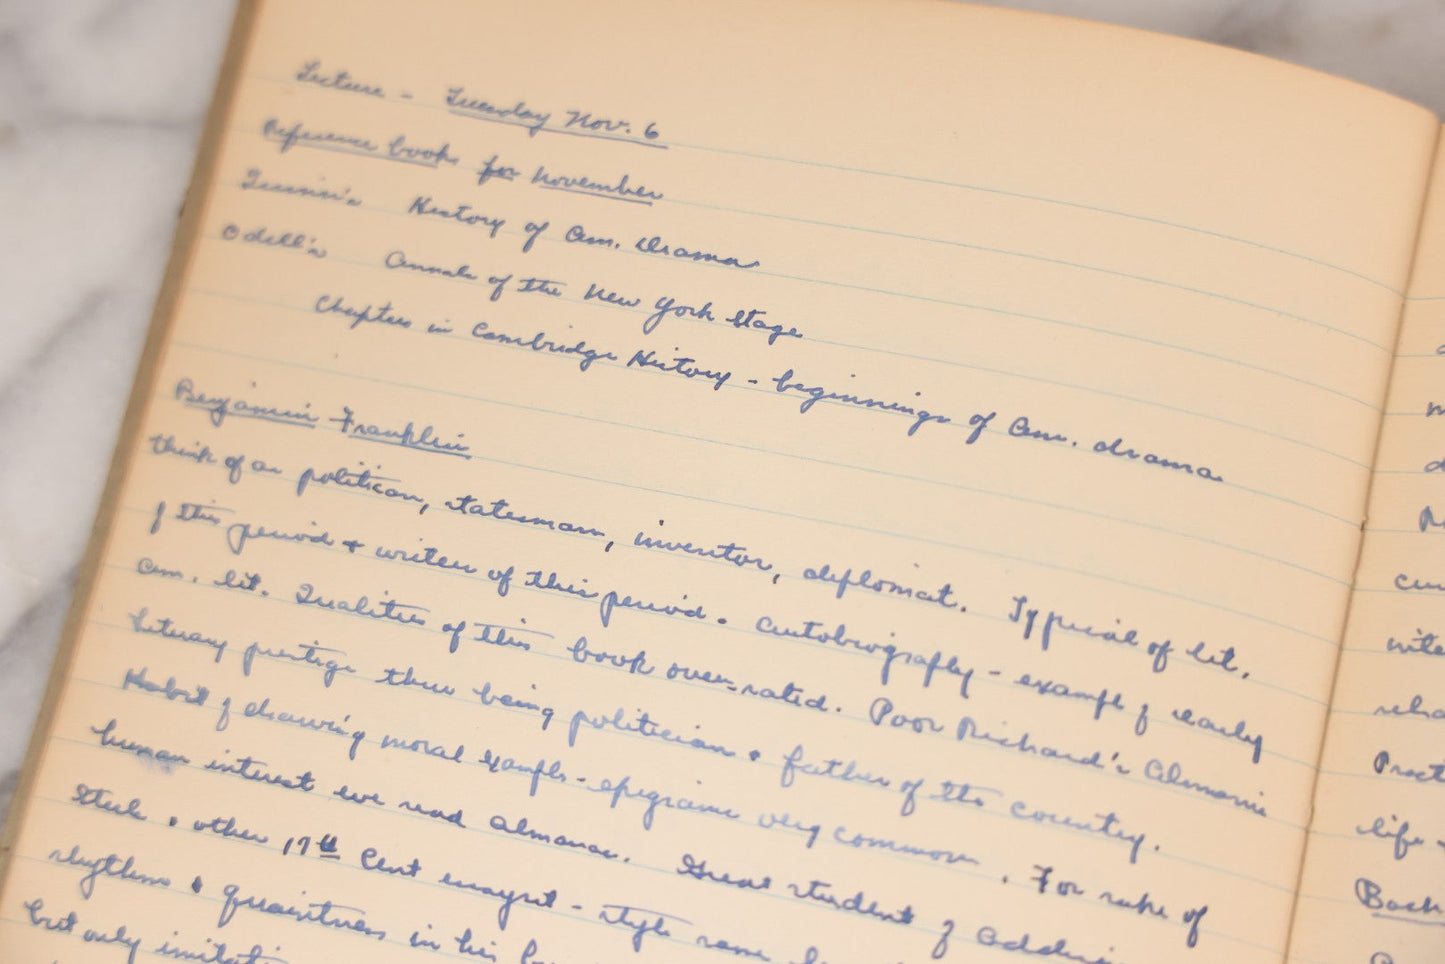 Lecture - Tuesday Nov. 6
Reference books for November
Quinn's History of Am. Drama
Odell's Annals of the New York Stage
Chapters in Cambridge History - beginnings of Am. drama
Benjamin Franklin
think of as politican, statesman, inventor, diplomat. Typical of lit.
of this period & writers of this period. Autobiography - example of early
Am. lit. Qualities of this book over-rated. Poor Richard's Almanac
Literary prestige thru being politician & father of the country.
Habit of drawing moral example - epigrams very common. For sake of
human interest we read almanac. Great student of Addison
Steele & other 17th Cent essayist - style same
rhythm & quaintness in his
but only